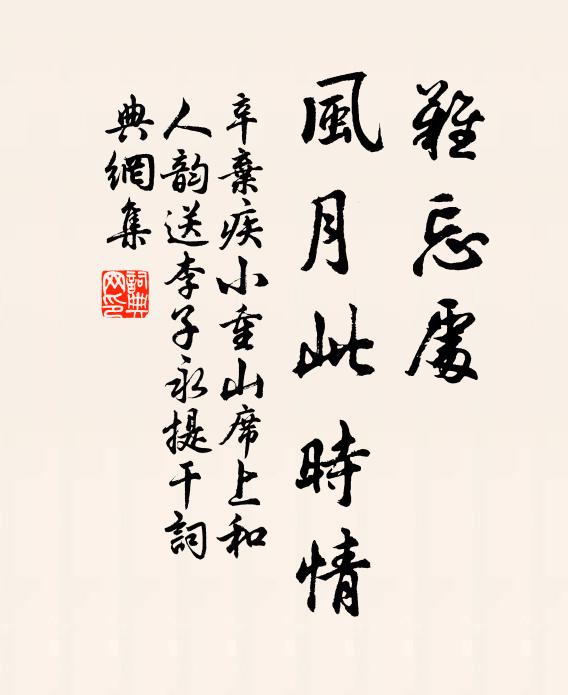 難忘處
風月此時情
辛棄疾小重山席上和
人韵送李子永提干詞
典網集
詞典
网印